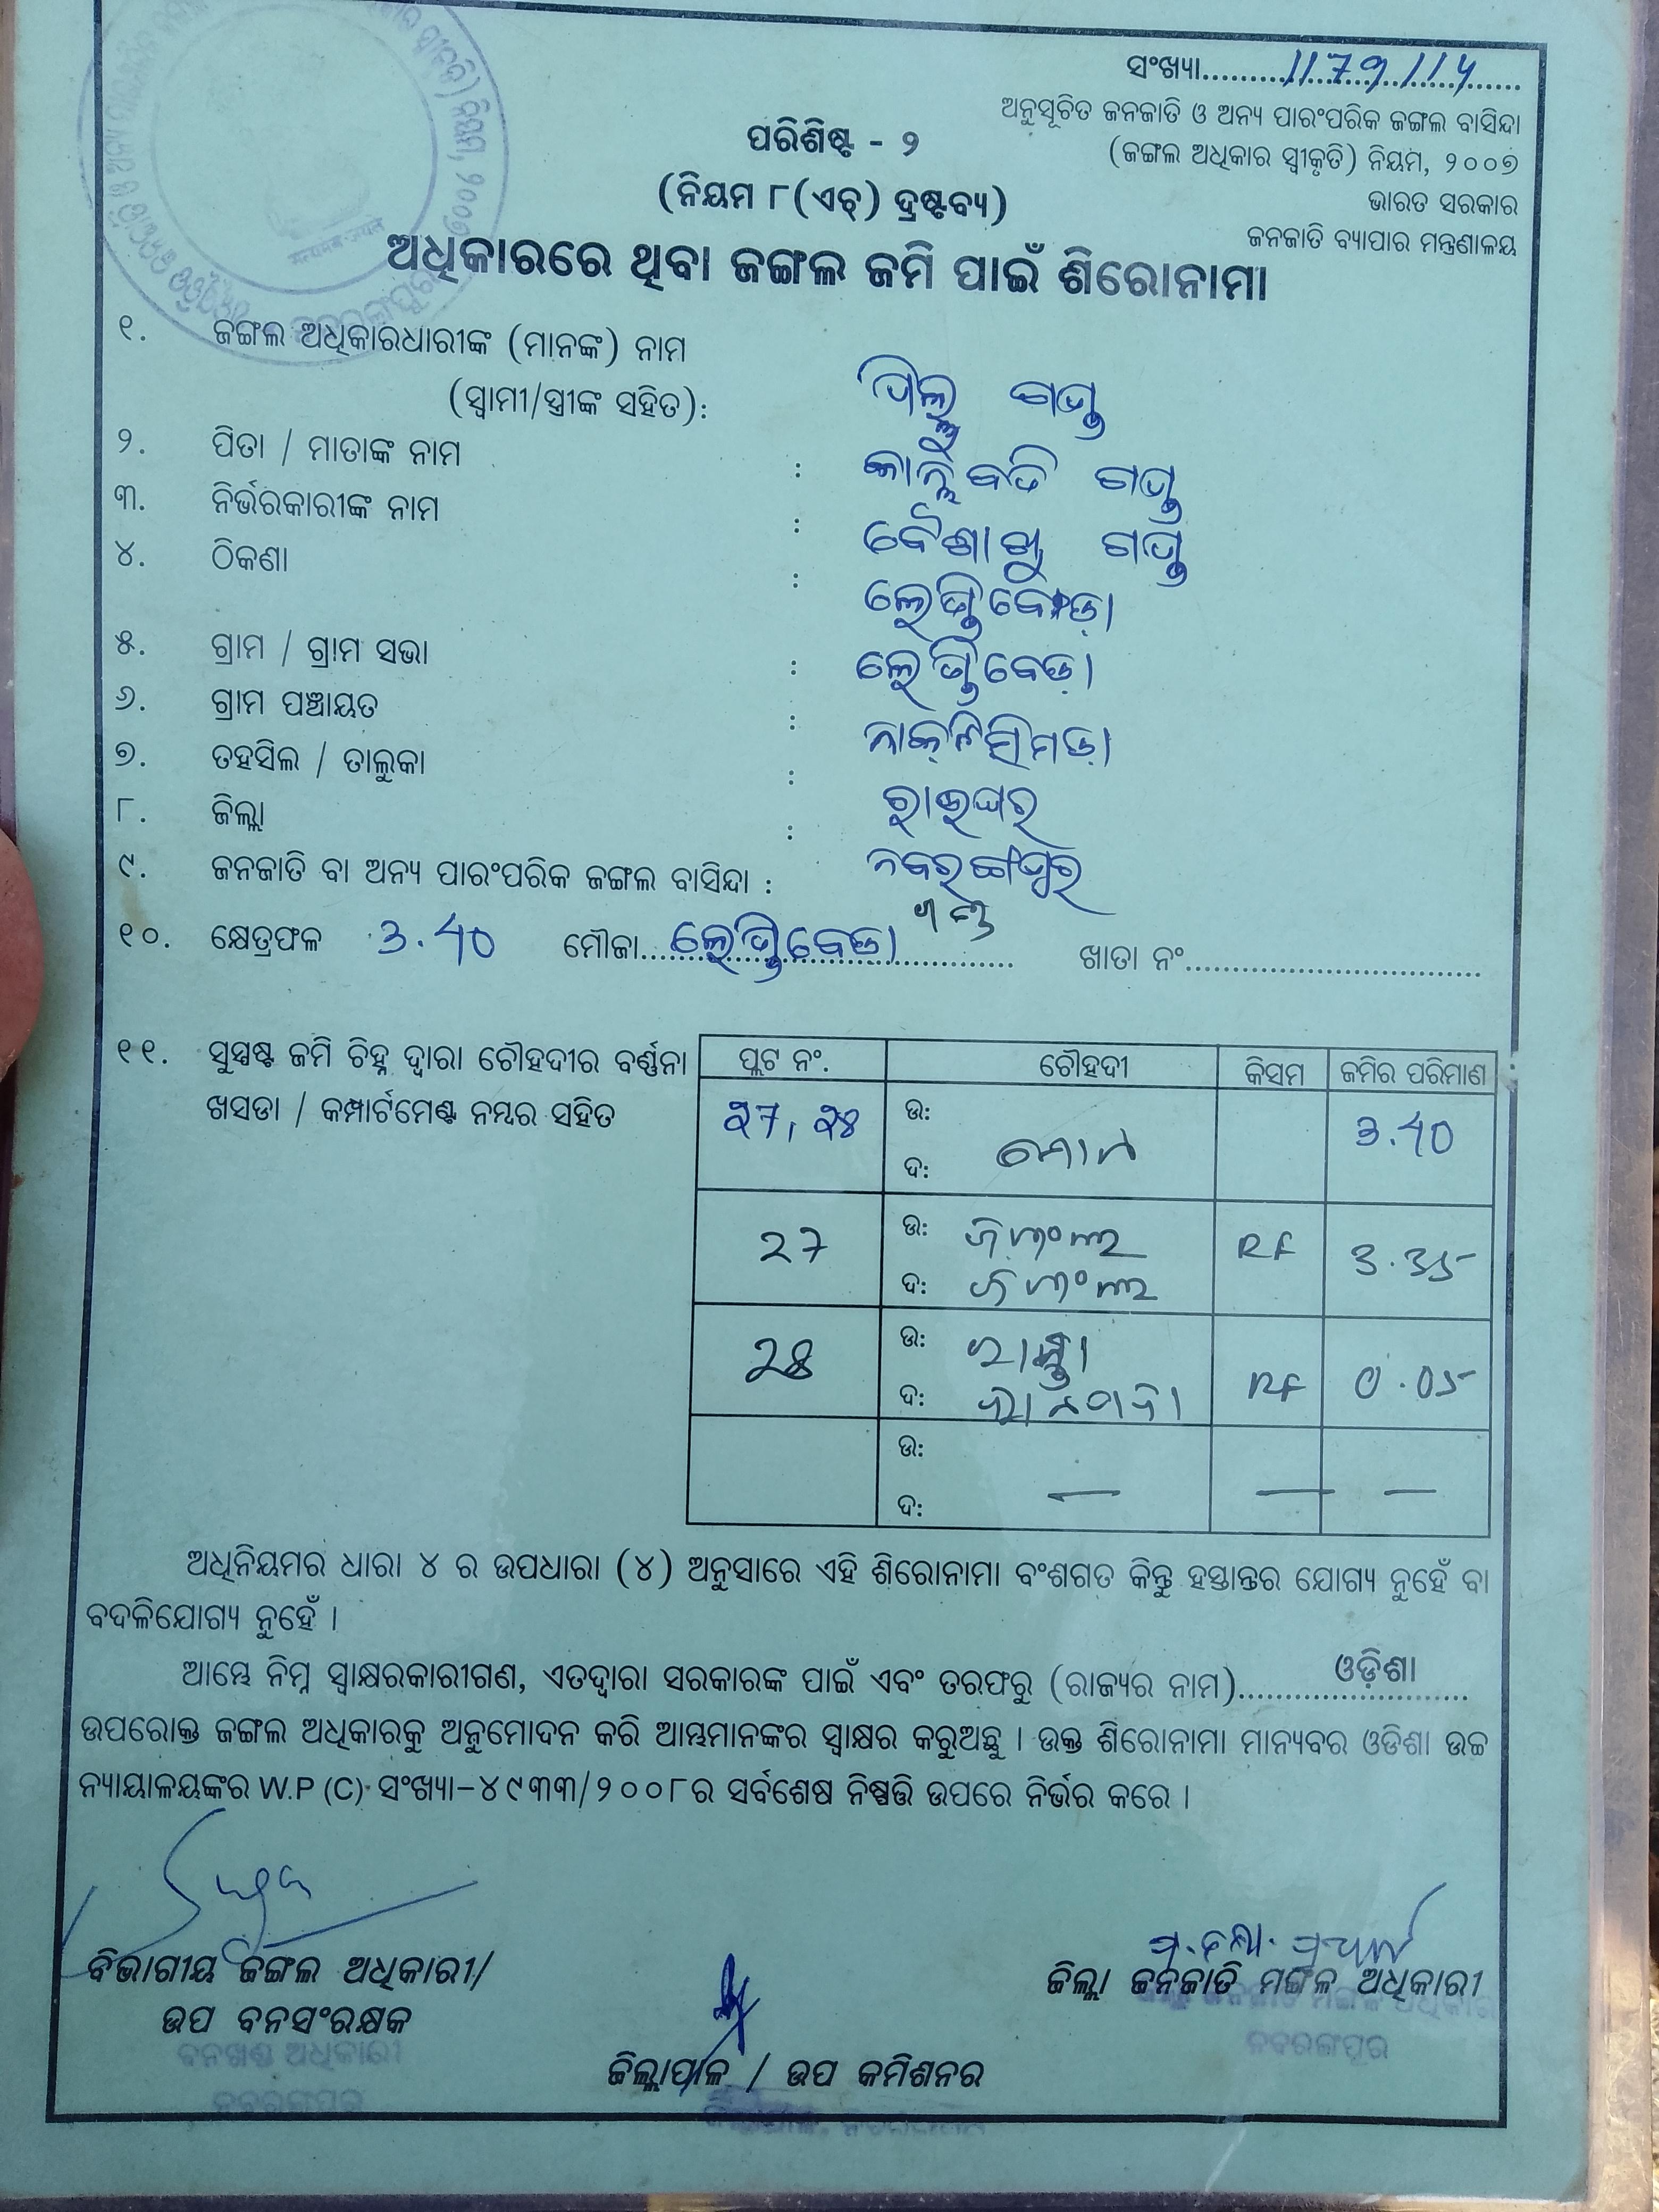 ସଂଖ୍ୟା..........1179/14......
ଅନୁସୂଚିତ ଜନଜାତି ଓ ଅନ୍ୟ ପାରଂପରିକ ଜଙ୍ଗଲ ବାସିନ୍ଦା
(ଜଙ୍ଗଲ ଅଧିକାର ସ୍ୱୀକୃତି) ନିୟମ, ୨୦୦୭
ଭାରତ ସରକାର
ଜନଜାତି ବ୍ୟାପାର ମନ୍ତ୍ରଣାଳୟ
ପରିଶିଷ୍ଟ - ୨
(ନିୟମ ୮(ଏଚ୍) ଦ୍ରଷ୍ଟବ୍ୟ)
ଅଧିକାରରେ ଥିବା ଜଙ୍ଗଲ ଜମି ପାଇଁ ଶିରୋନାମା
୧. ଜଙ୍ଗଲ ଅଧିକାରଧାରୀଙ୍କ (ମାନଙ୍କ) ନାମ
(ସ୍ୱାମୀ/ସ୍ତ୍ରୀଙ୍କ ସହିତ): ଗଣ୍ଡ
୨. ପିତା / ମାତାଙ୍କ ନାମ : ଗଣ୍ଡ
୩. ନିର୍ଭରକାରୀଙ୍କ ନାମ : ବୈଶାଖୁ ଗଣ୍ଡ
୪. ଠିକଣା :
୫. ଗ୍ରାମ / ଗ୍ରାମ ସଭା :
୬. ଗ୍ରାମ ପଞ୍ଚାୟତ :
୭. ତହସିଲ / ତାଲୁକା : ରାଇଘର
୮. ଜିଲ୍ଲା : ନବରଙ୍ଗପୁର
୯. ଜନଜାତି ବା ଅନ୍ୟ ପାରଂପରିକ ଜଙ୍ଗଲ ବାସିନ୍ଦା :
୧୦. କ୍ଷେତ୍ରଫଳ 3.40 ମୌଜା.................... ଖାତା ନଂ....................
୧୧. ସୁସ୍ପଷ୍ଟ ଜମି ଚିହ୍ନ ଦ୍ୱାରା ଚୌହଦୀର ବର୍ଣ୍ଣନା
ଖସଡା / କମ୍ପାର୍ଟମେଣ୍ଟ ନମ୍ବର ସହିତ
ପ୍ଲଟ ନଂ. ଚୌହଦୀ କିସମ ଜମିର ପରିମାଣ
27, 28 ଉ: 3.40
ଦ:
27 ଉ: RF 3.35
ଦ:
28 ଉ: ରାସ୍ତା RF 0.05
ଦ:
ଉ:
ଦ: — — —
ଅଧିନିୟମର ଧାରା ୪ ର ଉପଧାରା (୪) ଅନୁସାରେ ଏହି ଶିରୋନାମା ବଂଶଗତ କିନ୍ତୁ ହସ୍ତାନ୍ତର ଯୋଗ୍ୟ ନୁହେଁ ବା
ବଦଳିଯୋଗ୍ୟ ନୁହେଁ ।
ଆମ୍ଭେ ନିମ୍ନ ସ୍ୱାକ୍ଷରକାରୀଗଣ, ଏତଦ୍ୱାରା ସରକାରଙ୍କ ପାଇଁ ଏବଂ ତରଫରୁ (ରାଜ୍ୟର ନାମ).......ଓଡ଼ିଶା.......
ଉପରୋକ୍ତ ଜଙ୍ଗଲ ଅଧିକାରକୁ ଅନୁମୋଦନ କରି ଆମ୍ଭମାନଙ୍କର ସ୍ୱାକ୍ଷର କରୁଅଛୁ । ଉକ୍ତ ଶିରୋନାମା ମାନ୍ୟବର ଓଡିଶା ଉଚ୍ଚ
ନ୍ୟାୟାଳୟଙ୍କର W.P (C) ସଂଖ୍ୟା-୪୯୩୩/୨୦୦୮ର ସର୍ବଶେଷ ନିଷ୍ପତ୍ତି ଉପରେ ନିର୍ଭର କରେ ।
ବିଭାଗୀୟ ଜଙ୍ଗଲ ଅଧିକାରୀ/
ଉପ ବନସଂରକ୍ଷକ
ବନଖଣ୍ଡ ଅଧିକାରୀ
ନବରଙ୍ଗପୁର
ଜିଲ୍ଲାପାଳ / ଉପ କମିଶନର
ଜିଲ୍ଲା ଜନଜାତି ମଙ୍ଗଳ ଅଧିକାରୀ
ନବରଙ୍ଗପୁର